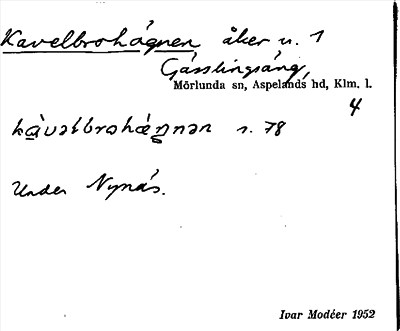 Kavelbrohägnen åker n. 1
Gässlingsäng,
Mörlunda sn, Aspelands hd, Klm. l.
4
n. 78
Under Nynäs.
Ivar Modéer 1952